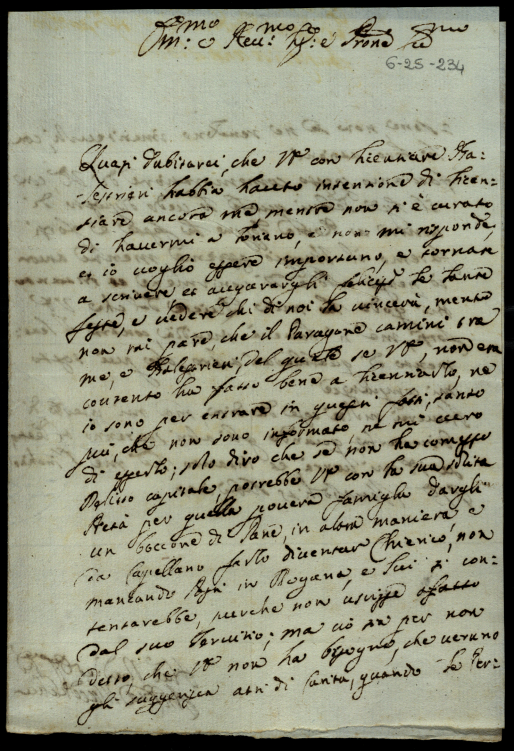 Ill:mo e Recc:mo Sig:e e Prone
6-25-234
Quasi dubitarei, che VS con licentiare Ba-
lestrieri habbia hauto intenzione di licen-
tiare ancora me, mentre non si è curato
di havermi a Torino, e non mi risponde,
et io voglio essere importuno, e tornare
a scrivere, et augurargli felici le sante
feste, e vedere chi di noi la vincerà, mentre
non mi pare che il Paragone camini tra
me, e Balestrieri del quale se VS, non era
contento ha fatto bene a licentiarlo, ne
io sono per entrare in questi fatti, tanto
più, che non sono informato, ne mi curo
di esserlo; solo dirò che se non ha comesso
delitto capitale, potrebbe VS con la sua solita
Pietà per quella povera famiglia dargli
un boccone di Pane, in altra maniera è
da Capellano farlo diventar Chierico, non
mancando in e lui si con-
tentarebbe, perche non uscisse affatto
dal suo Termine; ma ciò sia per non
detto, che VS non ha bisogno, che veruno
gli suggerisca atti di Carità, quando le Per-